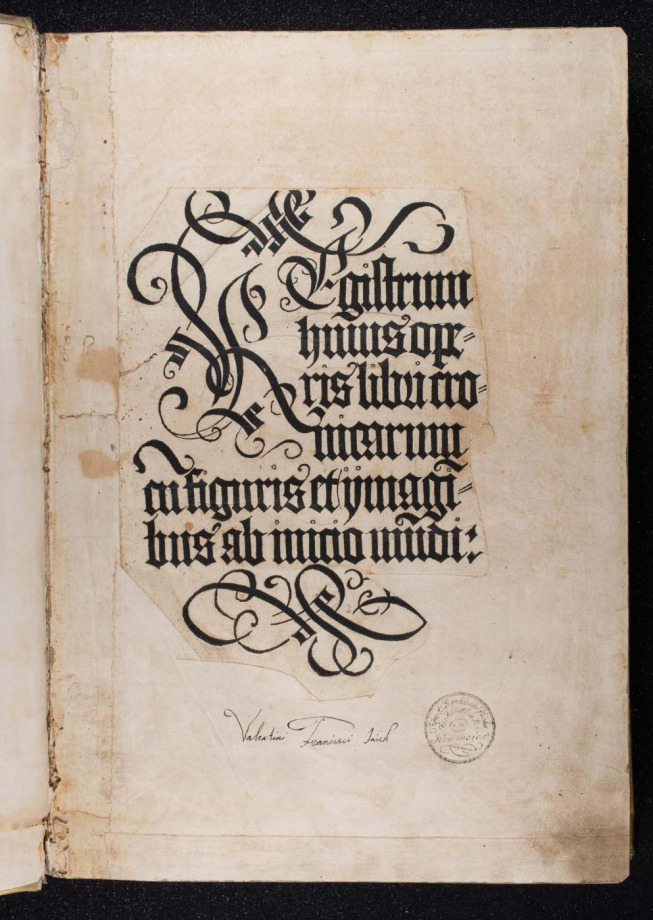 REgistrum
huius ope⸗
ris libri cro⸗
nicarum
cū figuris et ymagī⸗
bus ab inicio mūdi:
Valentini Francisci
Kremsier